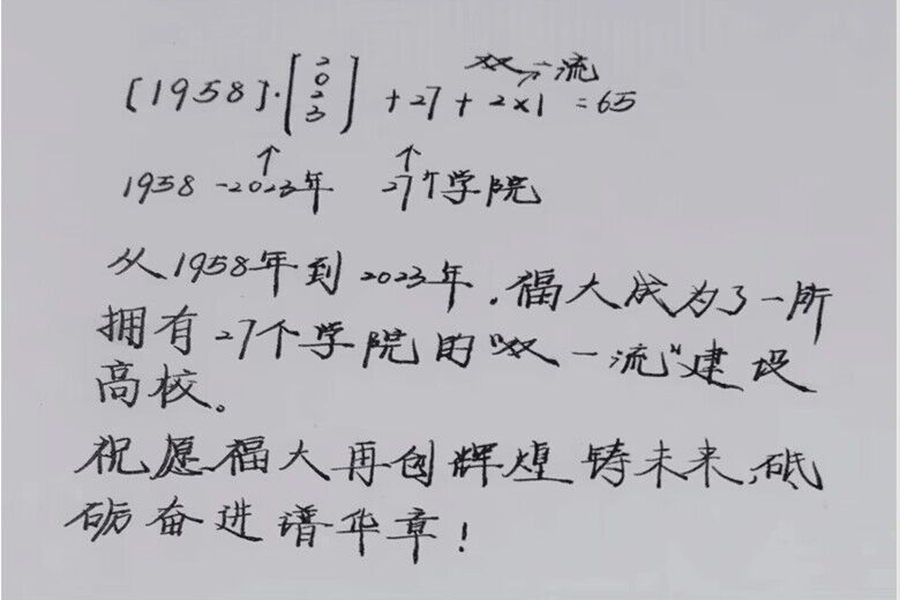 双一流
[1958]·[2 0 2 3] + 27 + 2×1 = 65
↑ ↑
1958-2023年 27个学院
从1958年到2023年，福大成为了一所
拥有27个学院的"双一流"建设
高校。
祝愿福大再创辉煌铸未来，砥
砺奋进谱华章！